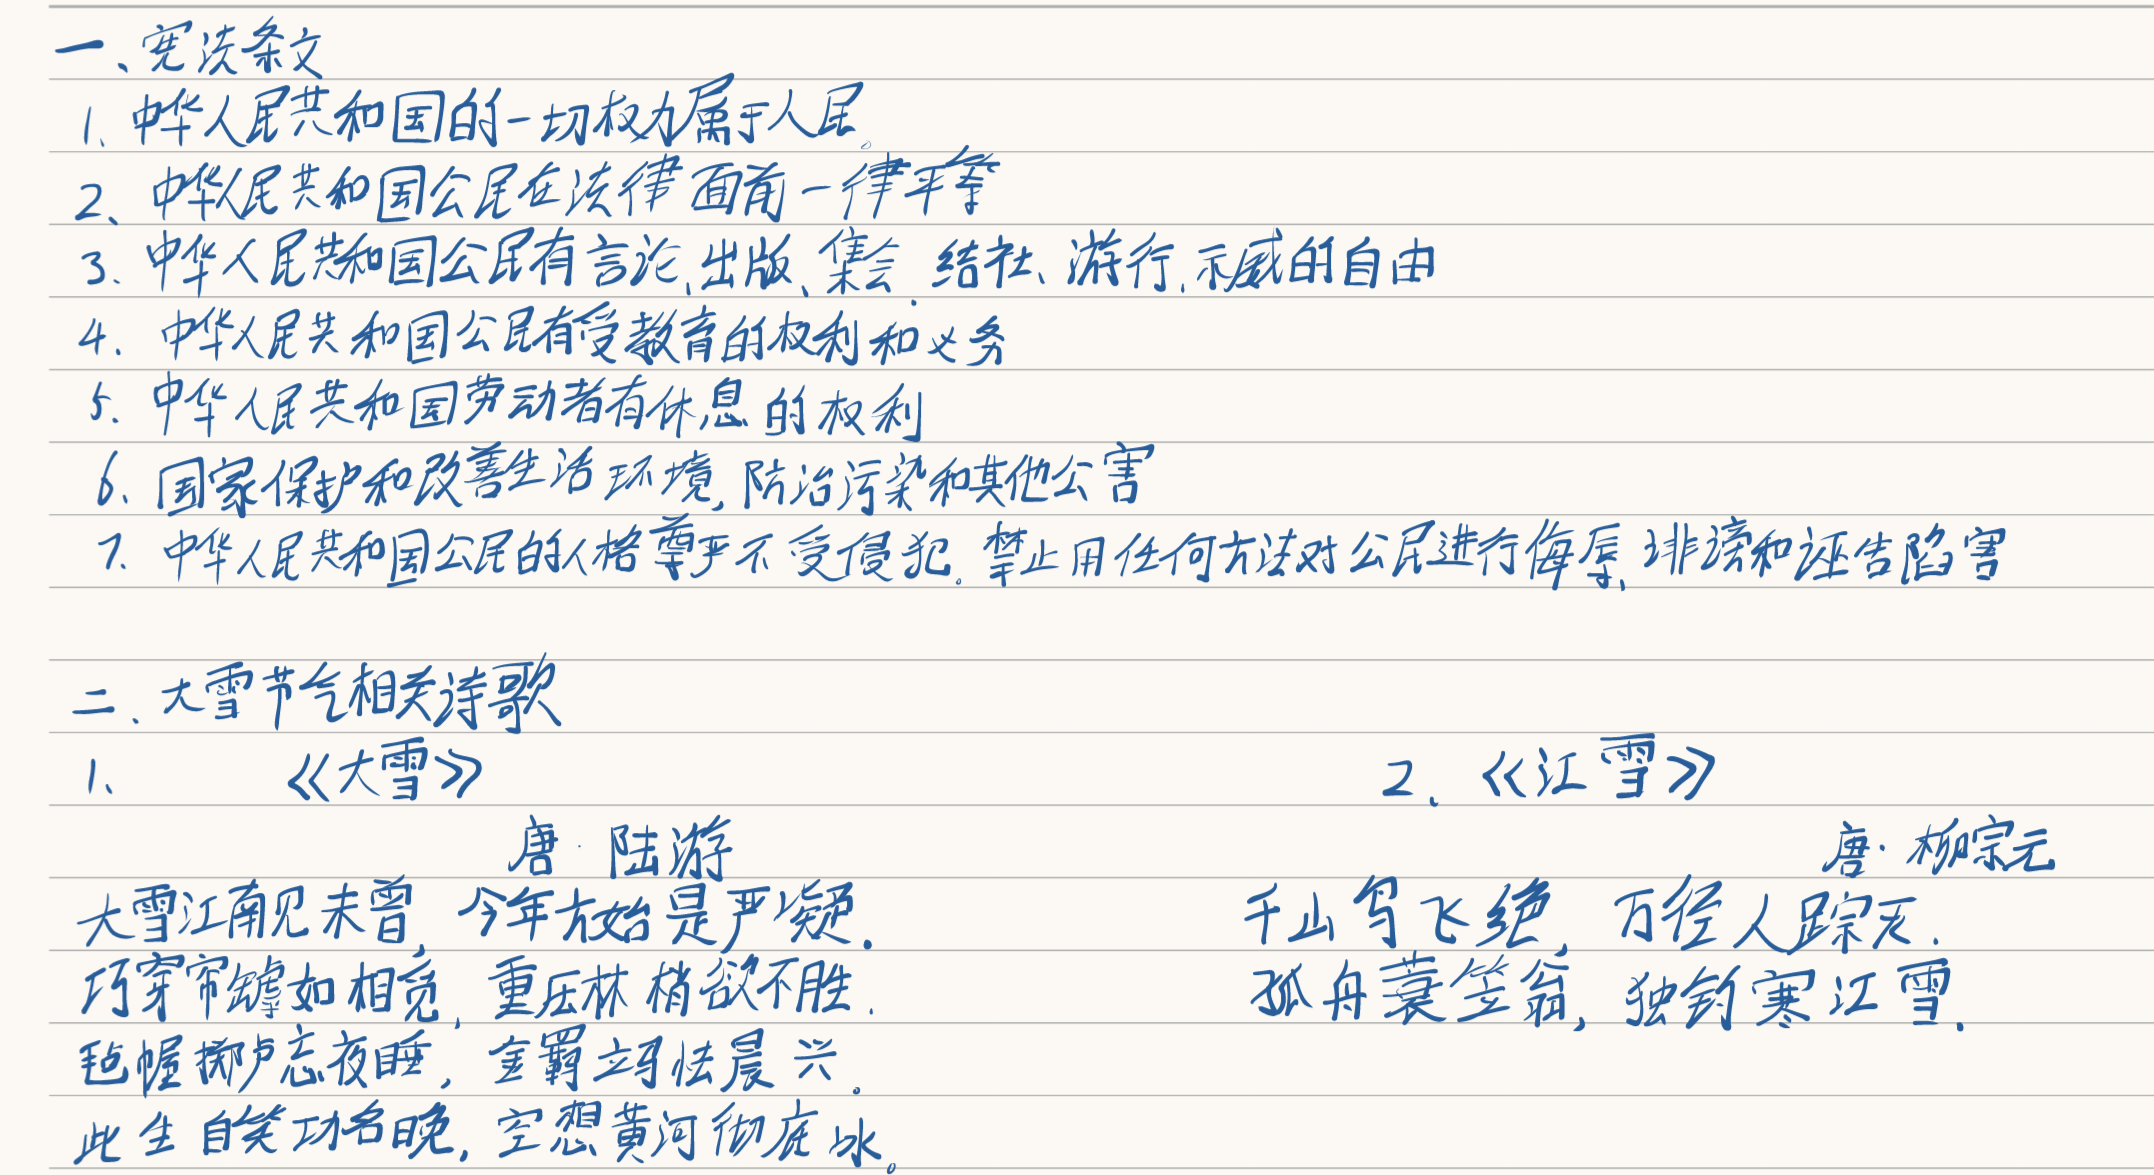 一、宪法条文
1、中华人民共和国的一切权力属于人民。
2、中华人民共和国公民在法律面前一律平等
3、中华人民共和国公民有言论、出版、集会、结社、游行、示威的自由
4、中华人民共和国公民有受教育的权利和义务
5、中华人民共和国劳动者有休息的权利
6、国家保护和改善生活环境,防治污染和其他公害
7、中华人民共和国公民的人格尊严不受侵犯。禁止用任何方法对公民进行侮辱、诽谤和诬告陷害
二、大雪节气相关诗歌
1、《大雪》
唐·陆游
大雪江南见未曾,今年方始是严凝.
巧穿帘罅如相觅,重压林梢欲不胜.
毡幄掷卢忘夜睡,金羁立马怯晨兴.
此生自笑功名晚,空想黄河彻底冰。
2、《江雪》
唐·柳宗元
千山鸟飞绝,万径人踪灭.
孤舟蓑笠翁,独钓寒江雪.